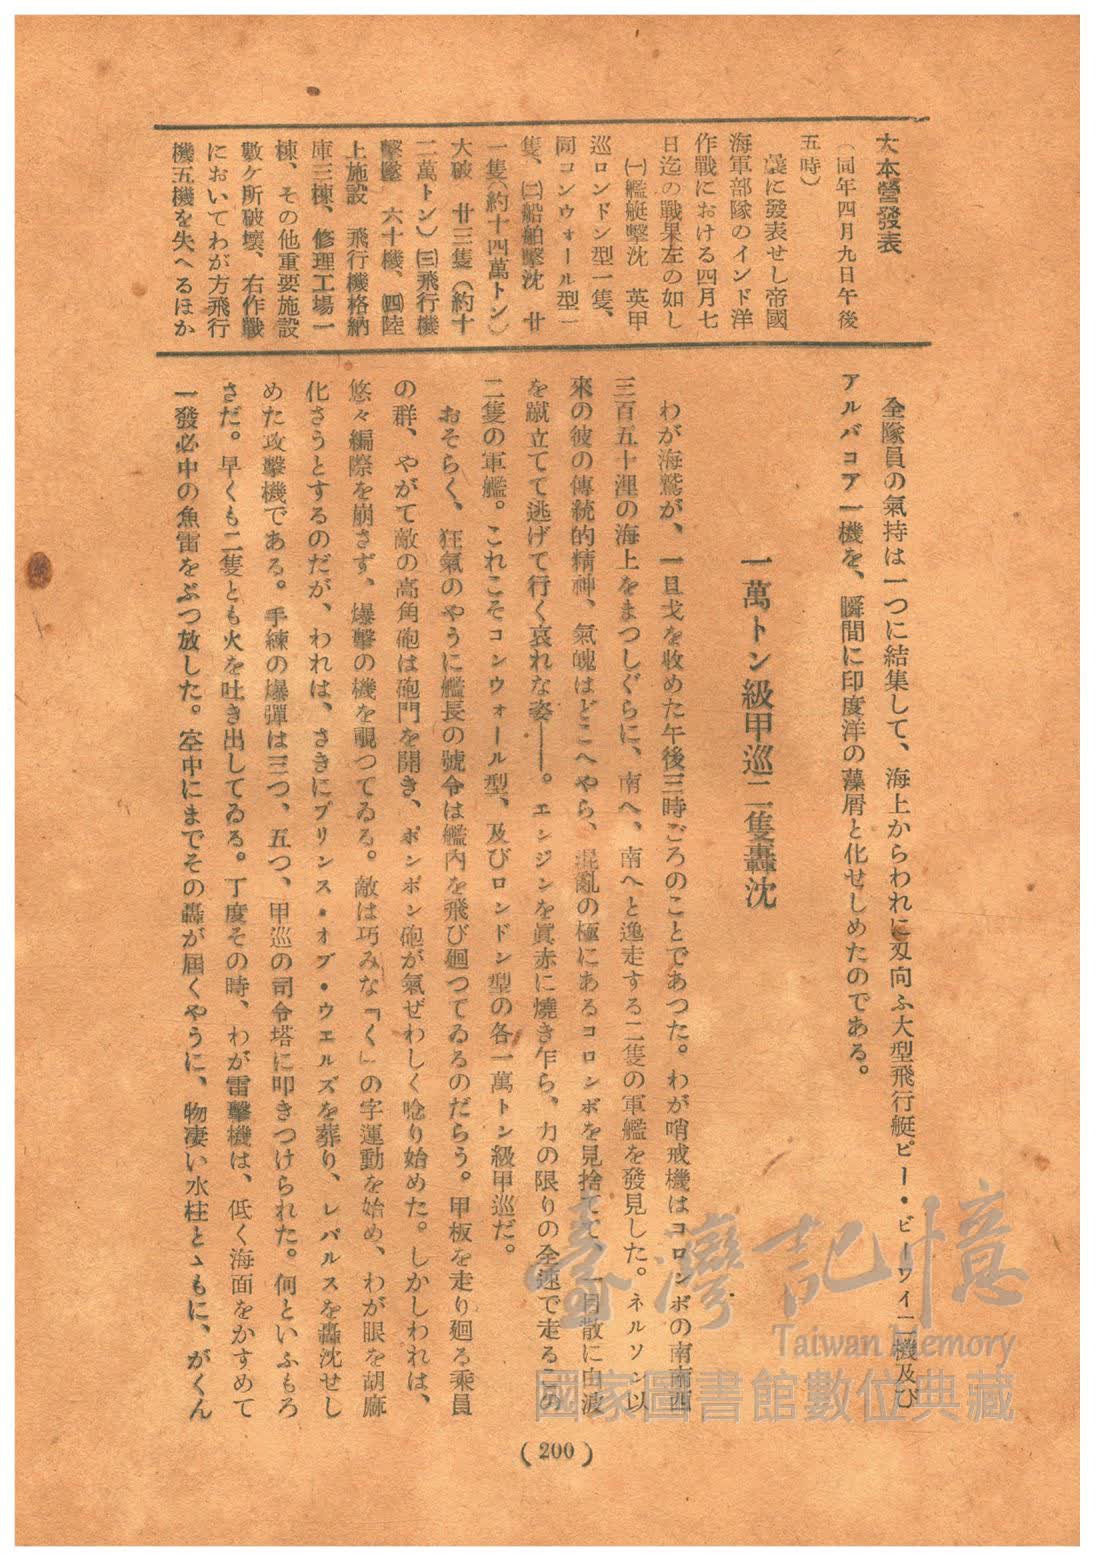 大本營發表
(同年四月九日午後
五時)
曩に發表せし帝國
海軍部隊のインド洋
作戰における四月七
日迄の戰果左の如し
㈠艦艇擊沈 英甲
巡ロンドン型一隻、
同コンウォール型一
隻、㈡船舶擊沈 廿
一隻(約十四萬トン)
大破 廿三隻(約十
二萬トン)㈢飛行機
擊墜 六十機、㈣陸
上施設 飛行機格納
庫三棟、修理工場一
棟、その他重要施設
數ケ所破壞、右作戰
においてわが方飛行
機五機を失へるほか
全隊員の氣持は一つに結集して、海上からわれに刄向ふ大型飛行艇ピー・ビーワイ二機及び
アルバコアー機を、瞬間に印度洋の藻屑と化せしめたのである。
一萬トン級甲巡二隻轟沈
わが海鷲が、一旦戈を收めた午後三時ごろのことであつた。わが哨戒機はコロンボの南南西
三百五十浬の海上をまつしぐらに、南へ、南へと逸走する二隻の軍艦を發見した。ネルソン以
來の彼の傳統的精神、氣魄はどこへやら、混亂の極にあるコロンボを見捨てて、一目散に白波
を蹴立てて逃げて行く哀れな姿——。エンジンを眞赤に燒き乍ら、力の限りの全速で走るこの
二隻の軍艦。これこそコンウォール型、及びロンドン型の各一萬トン級甲巡だ。
おそらく、狂氣のやうに艦長の號令は艦內を飛び廻つてゐるのだらう。甲板を走り廻る乘員
の群、やがて敵の高角砲は砲門を開き、ポンポン砲が氣ぜわしく唸り始めた。しかしわれは、
悠々編隊を崩さず、爆擊の機を覗つてゐる。敵は巧みな「く」の字運動を始め、わが眼を胡麻
化さうとするのだが、われは、さきにプリンス・オブ・ウエルズを葬り、レパルスを轟沈せし
めた攻擊機である。手練の爆彈は三つ、五つ、甲巡の司令塔に叩きつけられた。何といふもろ
さだ。早くも二隻とも火を吐き出してゐる。丁度その時、わが雷擊機は、低く海面をかすめて
一發必中の魚雷をぶつ放した。空中にまでその轟が屆くやうに、物凄い水柱とゝもに、がくん
(200)
臺灣記憶
Taiwan Memory
國家圖書館數位典藏